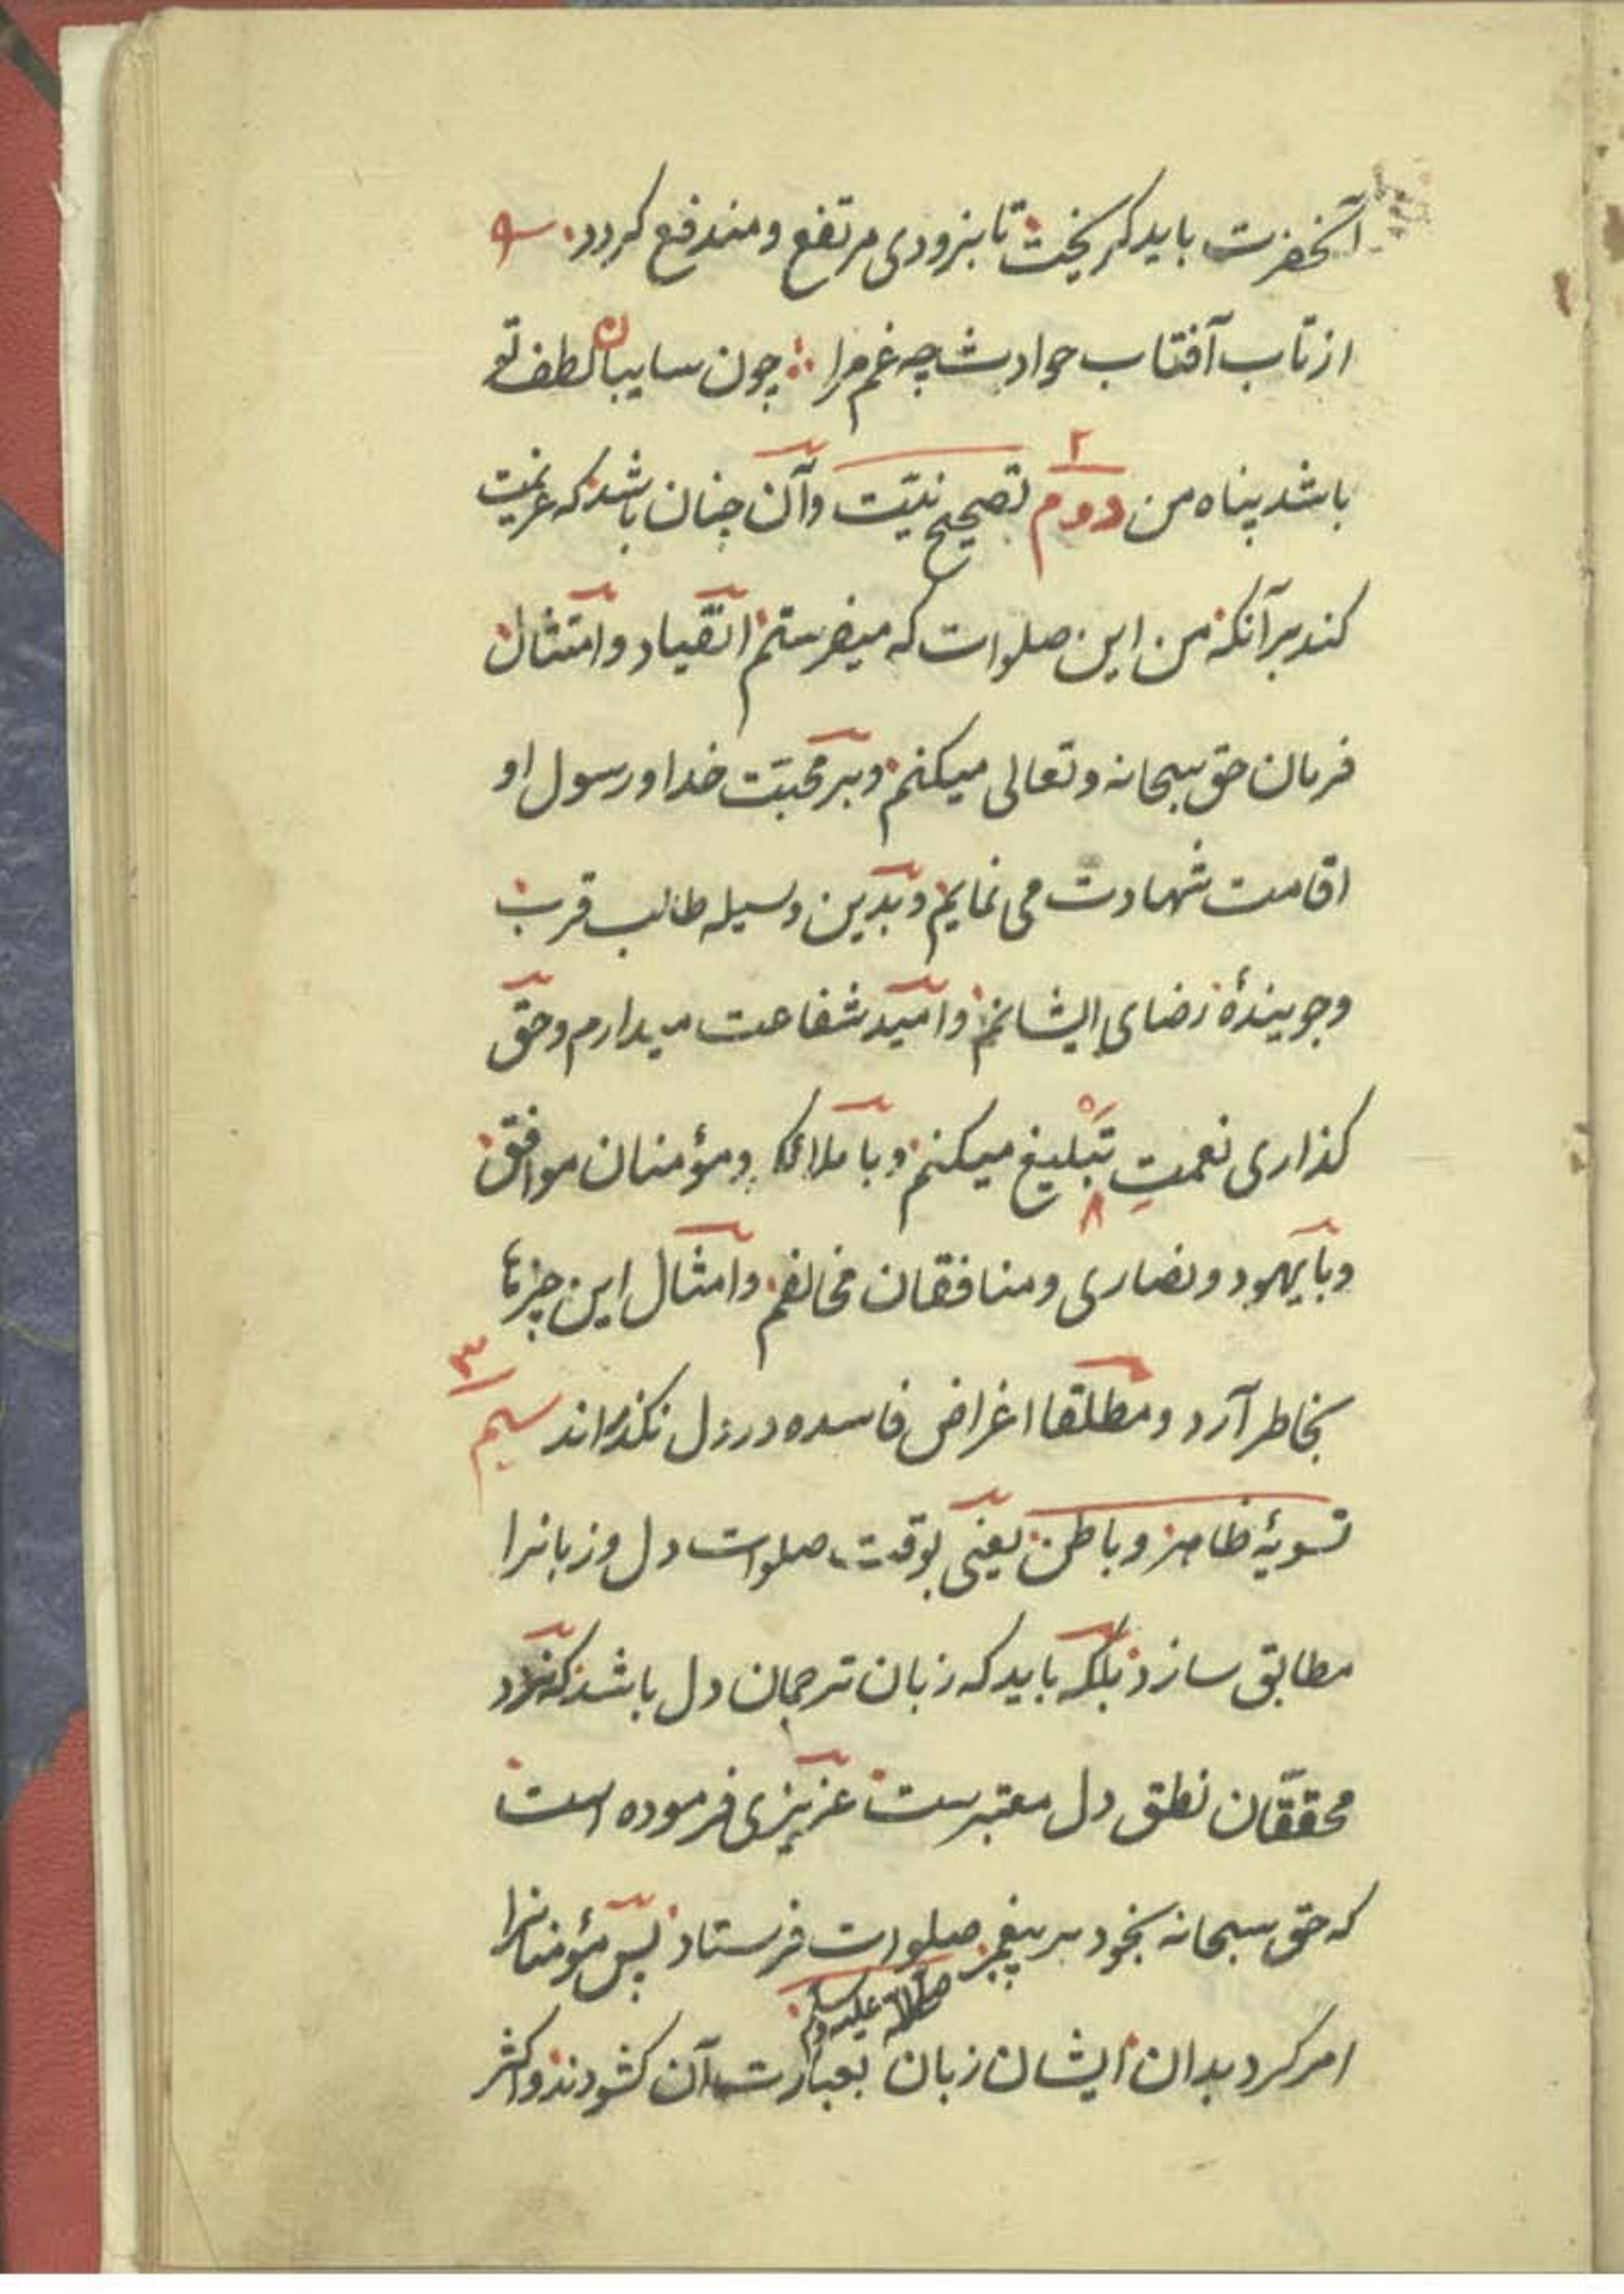 آنحضرت باید کریخت تا بزودی مرتفع و مندفع کردد
از تاب آفتاب حوادث چه غم مرا چون سایبان لطف تو
۲
باشد پناه من دوم تصحیح نیّت وآن چنان باشد که عزیمت
کند برآنکه من این صلوات که میفرستم انقیاد و امتثال
فرمان حق سبحانه و تعالی میکنم و بر محبّت خدا و رسول او
اقامت شهادت می نمایم و بدین وسیله طالب قرب
و جویندۀ رضای ایشانم و امید شفاعت میدارم و حقّ
کذاری نعمتِ تبلیغ میکنم و با ملائکه و مؤمنان موافق
و با یهود و نصاری و منافقان مخالفم و امثال این چیزها
۳
بخاطر آرد و مطلقا اغراض فاسده در دل نکذراند سیم
تسویۀ ظاهر و باطن یعنی بوقت صلوات دل و زبانرا
مطابق سازد بلکه باید که زبان ترجمان دل باشد که نزد
محقّقان نطق دل معتبرست عزیزی فرموده است
که حق سبحانه بخود بر پیغمبر صلوات فرستاد پس مؤمنانرا
صلی الله علیه وسلم
امر کرد بدان ایشان زبان بعبارت آن کشودند و اکثر